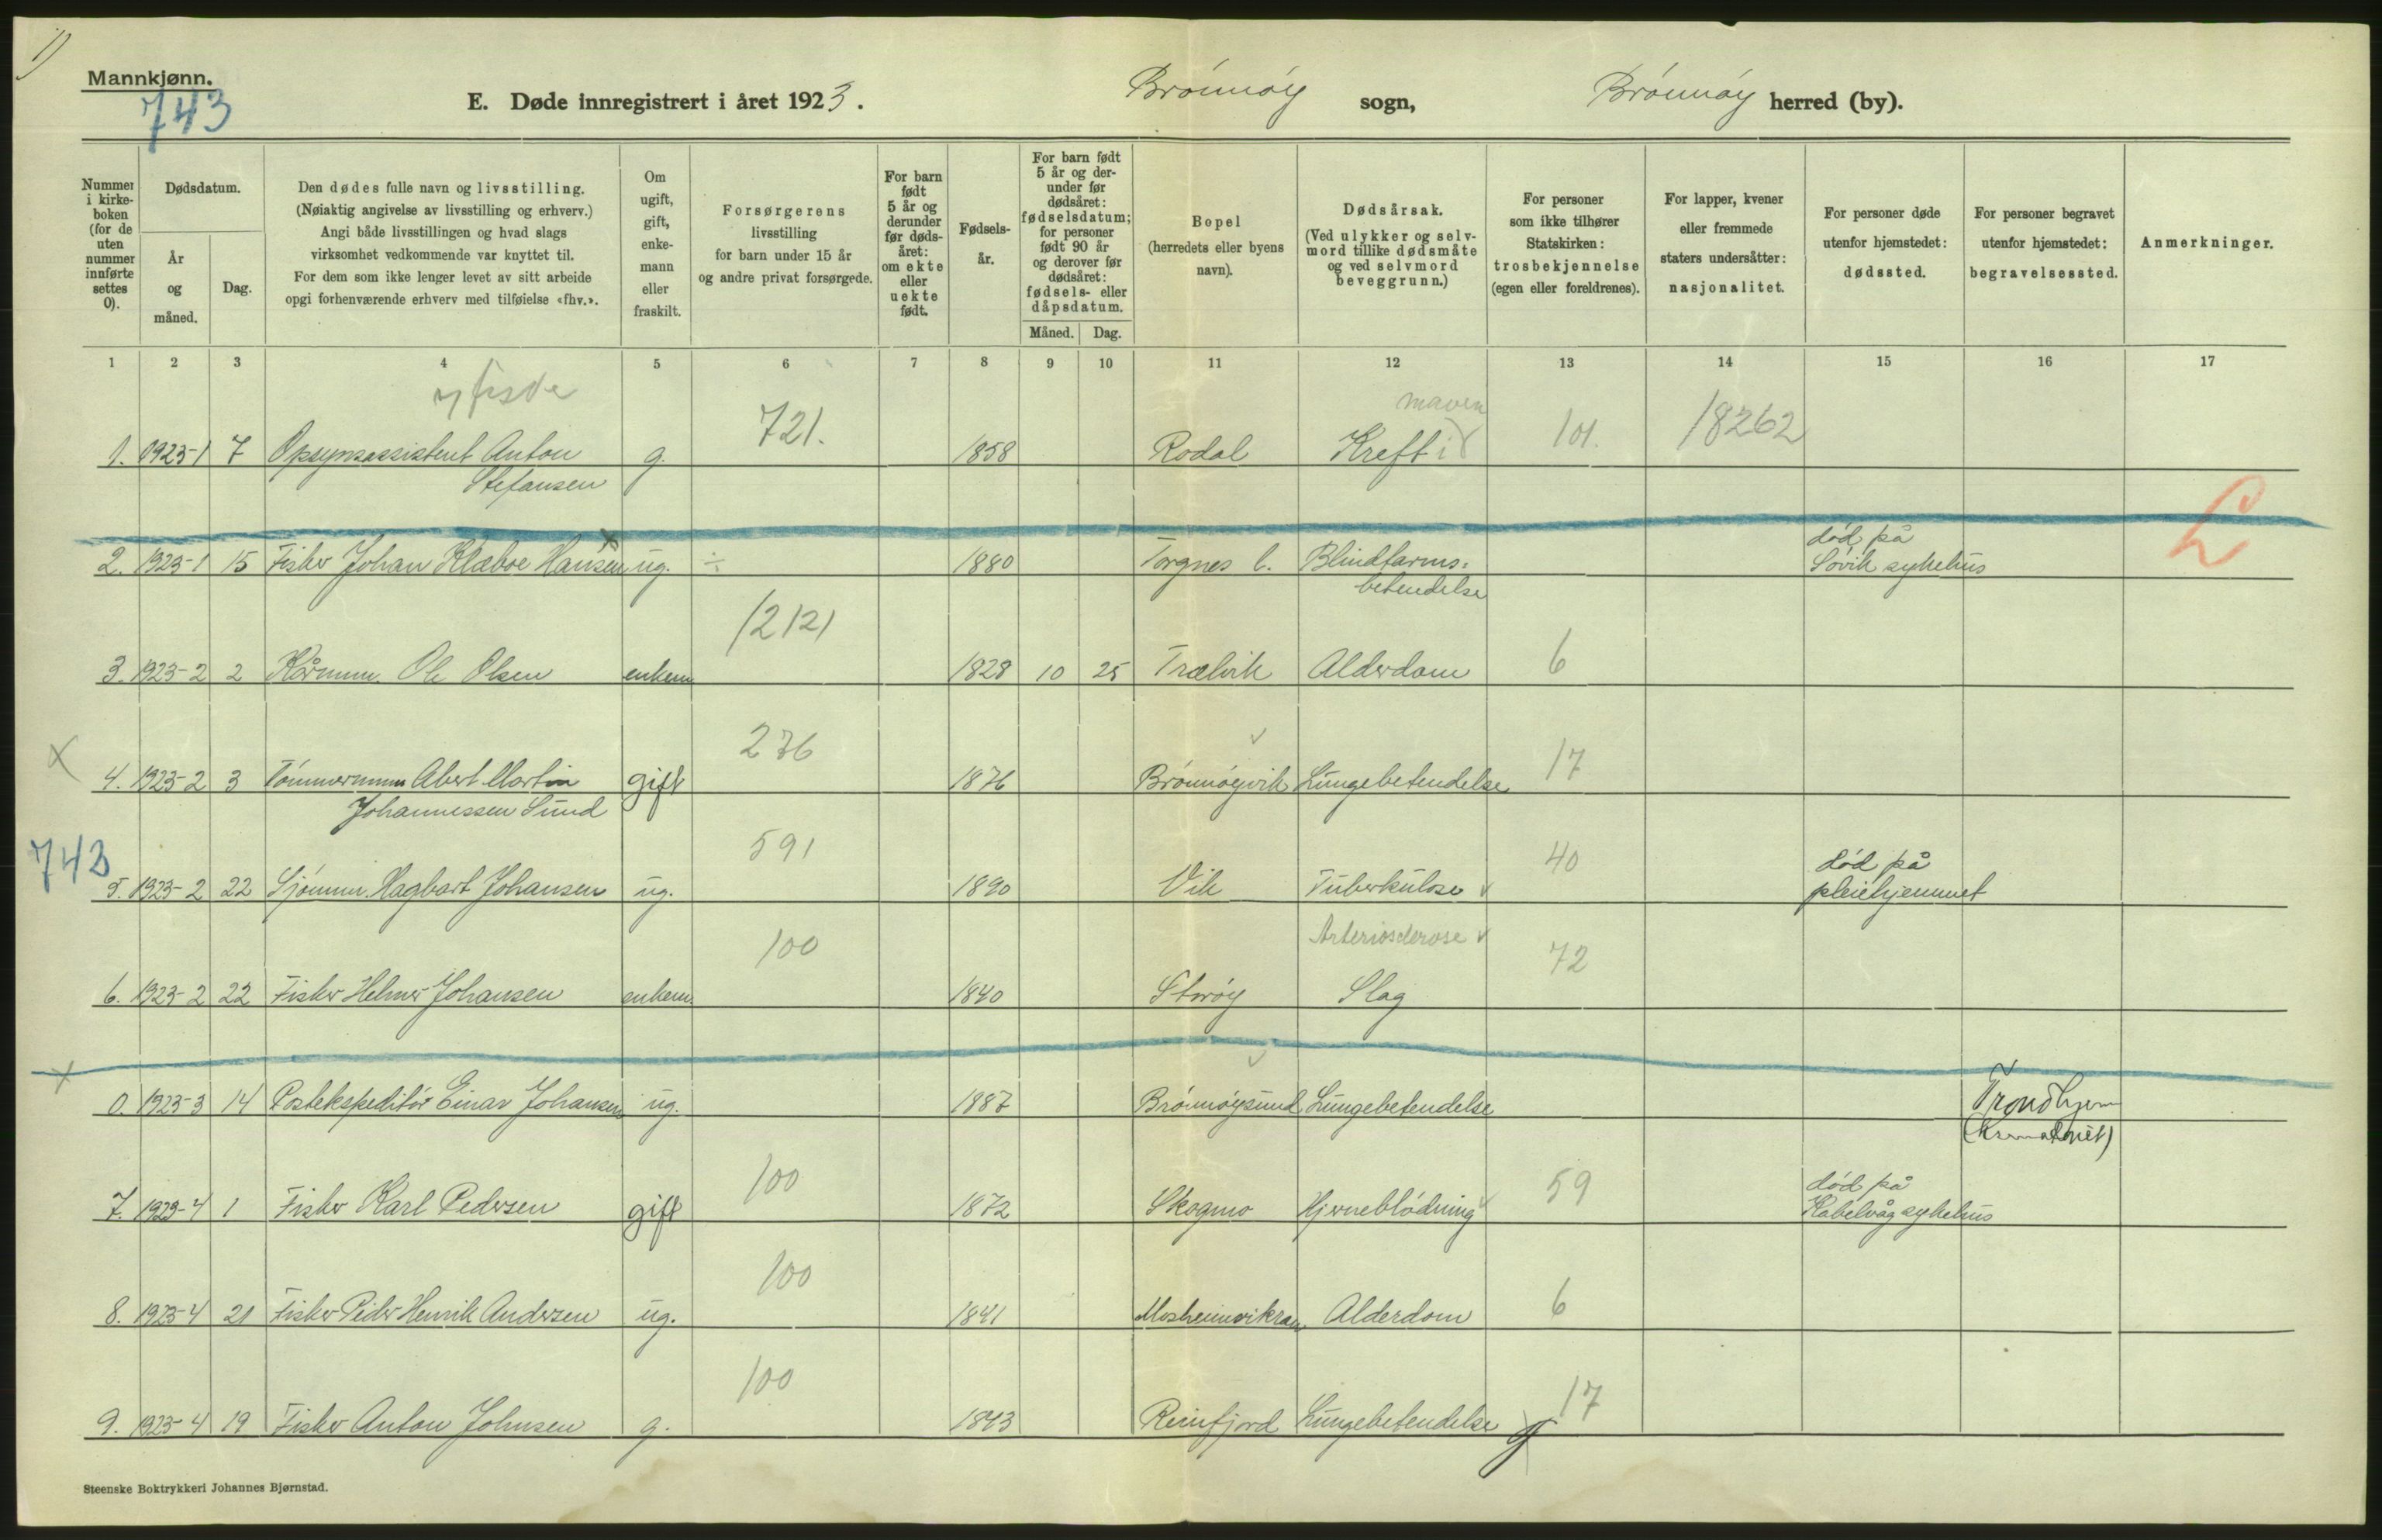 1)
Mannkjønn.
743
E. Døde innregistrert i året 1923. Brönnöy sogn, Brönnöy herred (by).
Nummer i kirkeboken (for de uten nummer innførte settes 0).
Dødsdatum.
År og måned.
Dag.
Den dødes fulle navn og livsstilling.
(Nøiaktig angivelse av livsstilling og erhverv.)
Angi både livsstillingen og hvad slags
virksomhet vedkommende var knyttet til.
For dem som ikke lenger levet av sitt arbeide
opgi forhenværende erhverv med tilføielse «fhv.».
Om ugift, gift, enkemann eller fraskilt.
Forsørgerens
livsstilling
for barn under 15 år
og andre privat forsørgede.
For barn født 5 år og derunder før dødsåret: om ekte eller uekte født.
Fødselsår.
For barn født 5 år og derunder før dødsåret: fødselsdatum; for personer født 90 år og derover før dødsåret: fødsels- eller dåpsdatum.
Måned. Dag.
Bopel
(herredets eller byens
navn).
Dødsårsak.
(Ved ulykker og selvmord tillike dødsmåte og ved selvmord beveggrunn.)
For personer
som ikke tilhører
Statskirken:
trosbekjennelse
(egen eller foreldrenes).
For lapper, kvener
eller fremmede
staters undersåtter:
nasjonalitet.
For personer døde
utenfor hjemstedet:
dødssted.
For personer begravet
utenfor hjemstedet:
begravelsessted.
Anmerkninger.
1 2 3 4 5 6 7 8 9 10 11 12 13 14 15 16 17
721. maven 101. 18262
1. 1923-1 7 Opsynsassistent Anton g. 1858 Rodal Kreft i
Stefansen
L
død på
2. 1923-1 15 Fisker Johan Klæboe Hansen ug. ÷ 1880 Torgnes l. Blindtarms- Søvik sykehus
betendelse
12121 6
3. 1923-2 2 Kårmann Ole Olsen enkem 1828 10 25 Trælvik Alderdom
X 276 17
4. 1923-2 3 Tömmermann Abert Martin gift 1876 Brönnöyvik Lungebetendelse
Johannessen Sund
743 591 40 død på
5. 1923-2 22 Sjömann Hagbart Johansen ug. 1890 Vik Tuberkulose pleiehjemmet
100 Arteriosclerose 72
6. 1923-2 22 Fisker Helmer Johansen enkem 1840 Storöy Slag
X
0. 1923-3 14 Postekspeditör Einar Johansen ug. 1887 Brönnöysund Lungebetendelse Trondhjem
(Krematoriet)
100 59 død på
7. 1923-4 1 Fisker Karl Pedersen gift 1872 Skogmo Hjerneblödning Kabelvåg sykehus
100 6
8. 1923-4 21 Fisker Peder Henrik Andersen ug. 1841 Mosheimvikran Alderdom
100 17
9. 1923-4 19 Fisker Anton Johnsen g. 1843 Reinfjord Lungebetendelse
Steenske Boktrykkeri Johannes Bjørnstad.